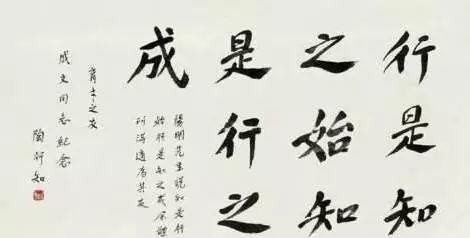 行是知
之始知
是行之
成
陽明先生說知是行
始行是知之成
適為其反
育才之友
成文同志紀念
陶行知